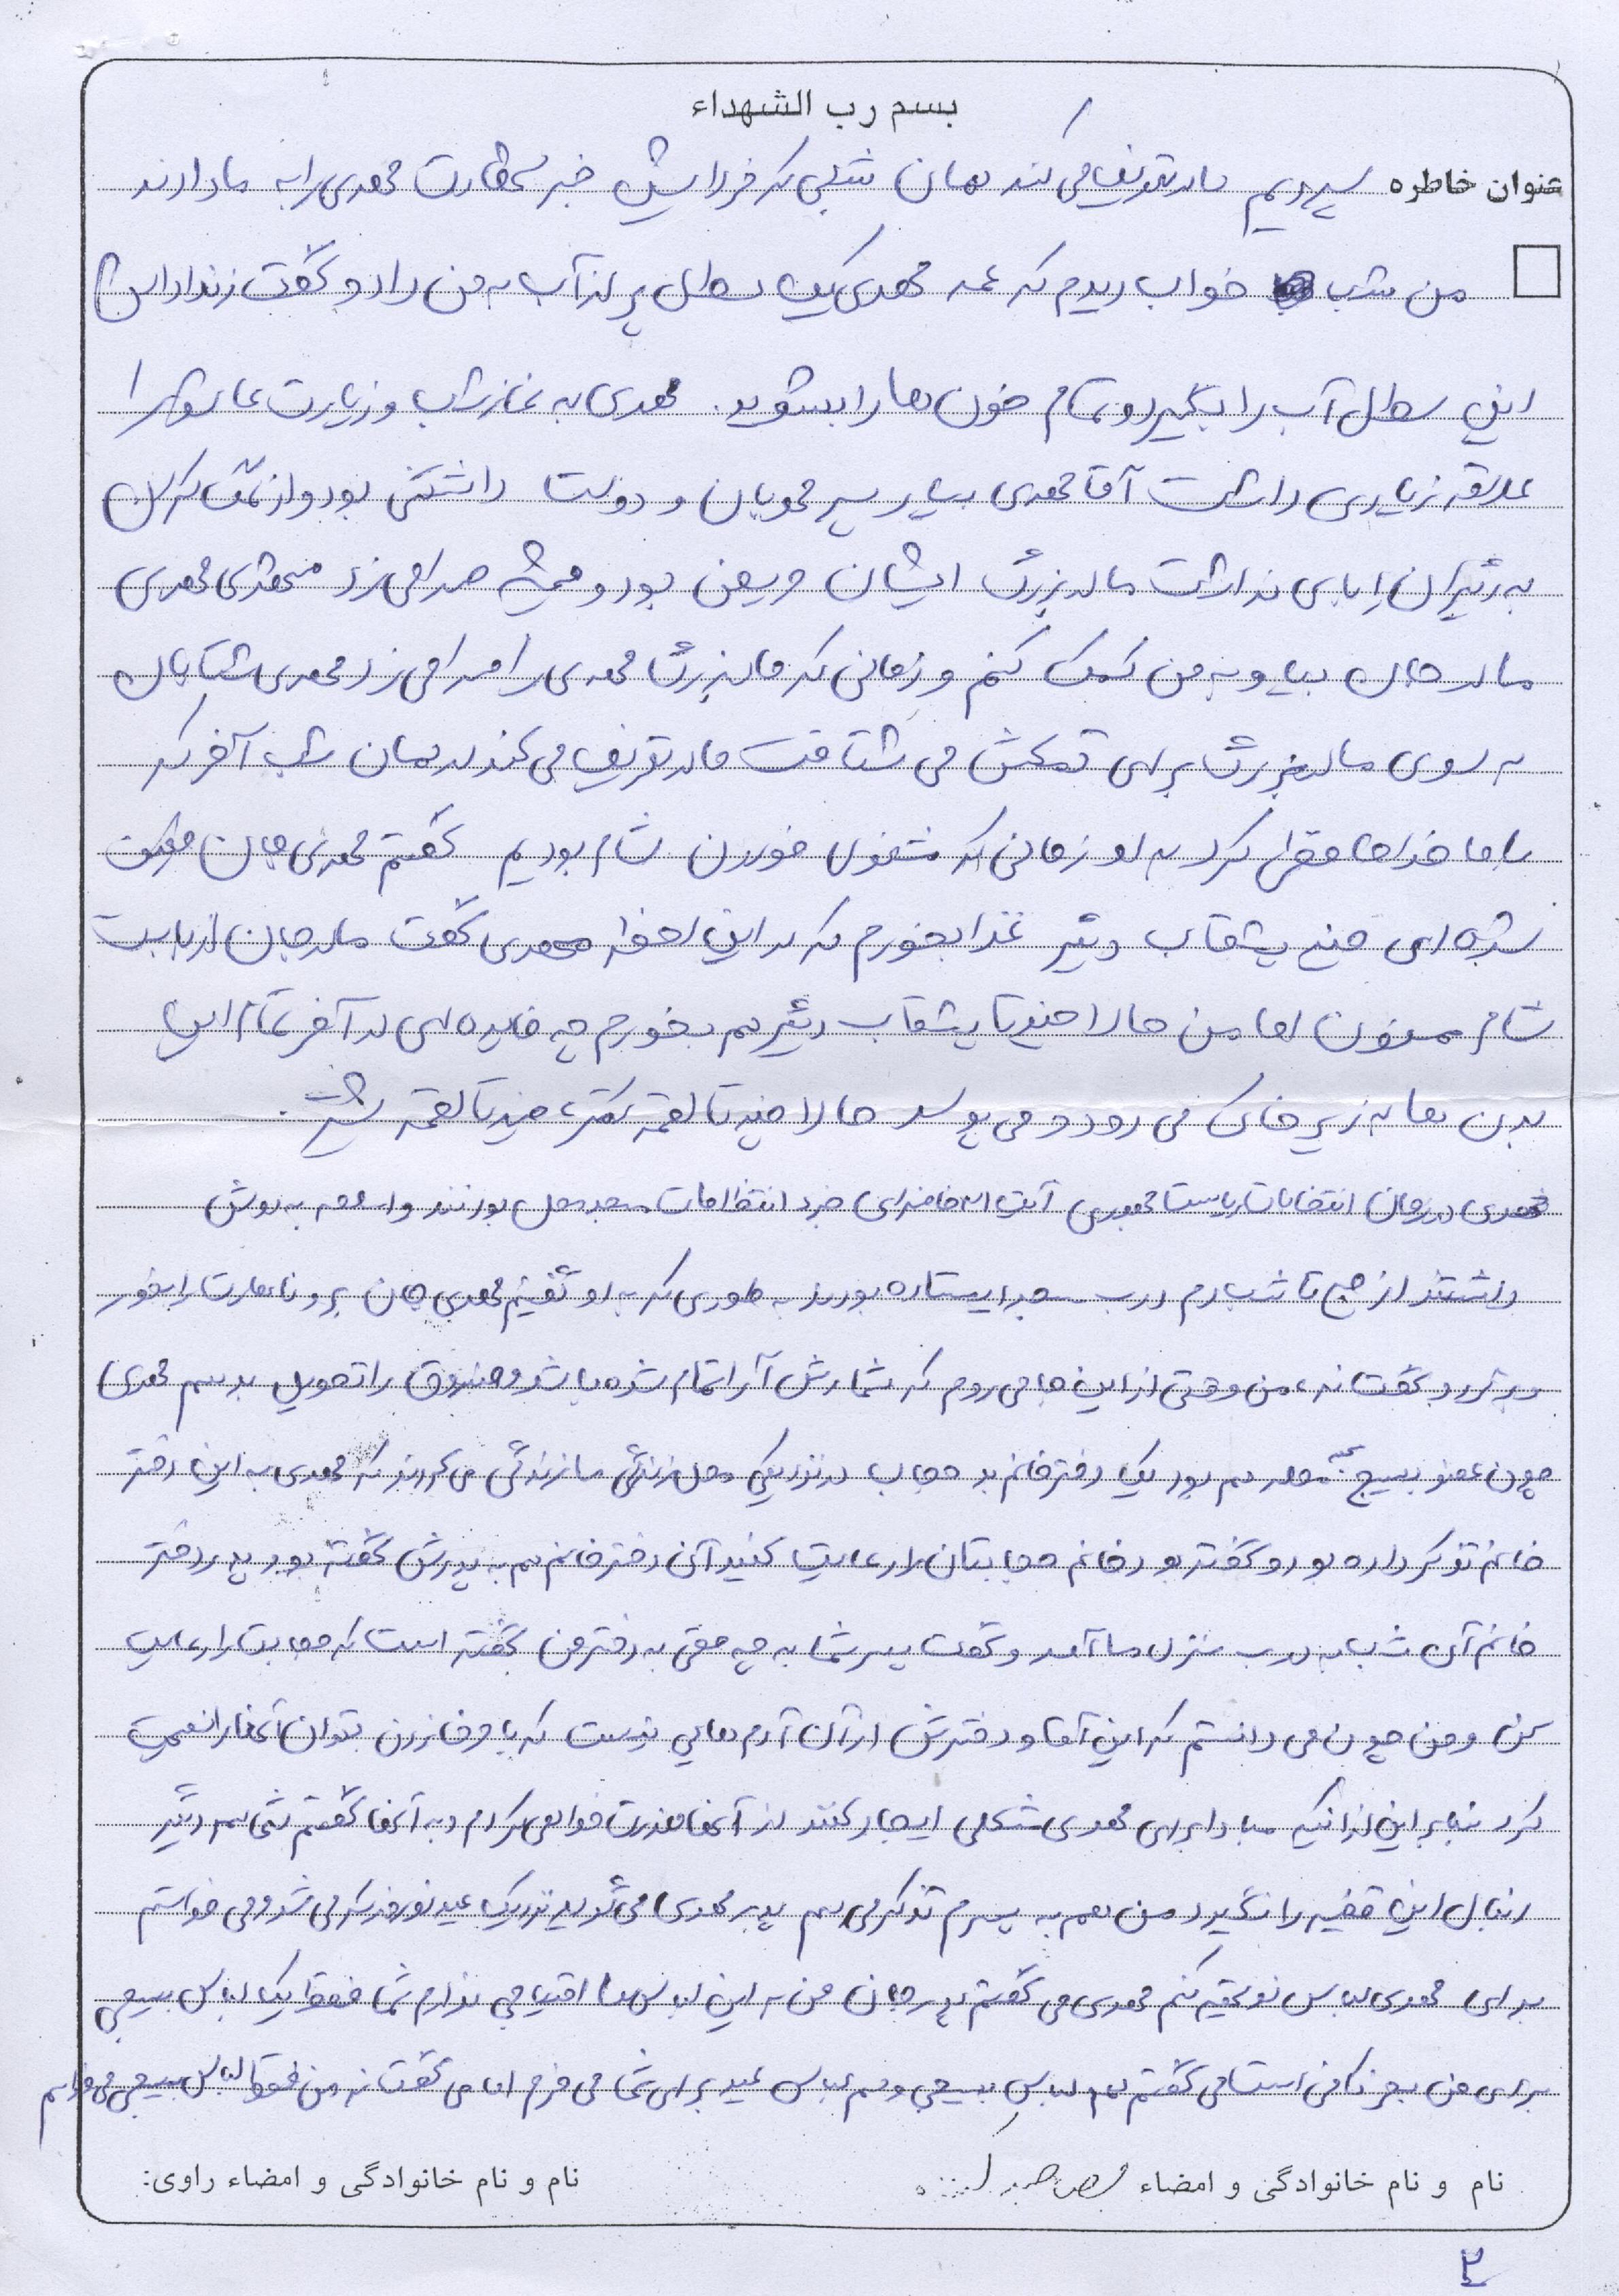 بسم رب الشهداء
عنوان خاطره سپردیم مادر تعریف می کند همان شبی که فردایش خبر شهادت مهدی را به ما دادند
من شب خواب دیدم که عمه مهدی یک سطل پر از آب به من داد و گفت زنداداش
این سطل آب را بگیر و تمام خون ها را بشوید. مهدی به نماز شب و زیارت عاشورا
علاقه زیادی داشت آقا مهدی بسیار پسر مهربان و دوست داشتنی بود و از کمک کردن
به دیگران ابایی نداشت مادربزرگ ایشان مریض بود و همیشه صدا می زد مهدی
مادر جان بیا و به من کمک کنم و زمانی که مادربزرگ مهدی را صدا می زد مهدی شتابان
به سوی مادربزرگ برای کمکش می شتافت مادر تعریف می کند در همان شب آخر که
با ما خداحافظی کرد به او زمانی که مشغول خوردن شام بودیم گفتم مهدی جان
چند بشقاب دیگر غذا بخورم که در این لحظه مهدی گفت مادر جان از بابت
شام ممنون اما من حالا چند تا بشقاب دیگر هم بخورم چه فایده ای در آخر تمام این
بدن ما به زیر خاک می رود و می پوسد حالا چند تا لقمه کمتر، چند تا لقمه بیشتر.
مهدی در زمان انتخابات ریاست جمهوری آیت اله خامنه ای جزء انتظامات مسجد محل بودند و اسلحه به دوش
داشتند از صبح تا شب دم درب مسجد ایستاده بودند به طوری که به او گفتیم مهدی جان برو ناهارت را بخور
و گفت نه، من وقتی از این جا می روم که شمارش آرا تمام شده باشد و صندوق را تحویل بدهم مهدی
چون عضو بسیج محله هم بود یک دختر خانم بد حجاب در نزدیکی محل زندگی ما زندگی می کردند که مهدی به این دختر
خانم تذکر داده بود و گفته بود خانم حجابتان را رعایت کنید آن دختر خانم هم به پدرش گفته بود پدر دختر
خانم آن شب به درب منزل ما آمد و گفت پسر شما به چه حقی به دختر من گفته است که حجابت را رعایت
کن و من چون می دانستم که این آقا و دخترش از آن آدم هایی نیست که با حرف زدن بتوان آنها را نصیحت
کرد بنابراین از اینکه مبادا برای مهدی مشکلی ایجاد کنند از آنها معذرت خواهی کردم و به آنها گفتم شما هم دیگر
دنبال این قضیه را نگیرد من هم به پسرم تذکر می دهم پدر مهدی می گوید نزدیک عید نوروز که می شد و می خواستم
برای مهدی لباس نو تهیه کنم مهدی می گفت پدر جان من به این لباس ها احتیاجی ندارم شما فقط یک لباس بسیجی
برای من بخر کافی است می گفتم هم لباس بسیجی و هم لباس عید برای شما می خرم اما می گفت نه من فقط لباس بسیجی می خواهم
نام و نام خانوادگی و امضاء
نام و نام خانوادگی و امضاء راوی:
۲